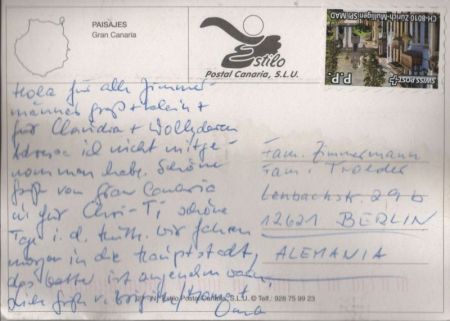 PAISAJES
Gran Canaria
Estilo
Postal Canaria, S.L.U.
SWISS POST
P.P.
CH-8010 Zürich-Mülligen SPI/MAD
Hola für alle Zimmer-
männer groß + klein +
für Claudia + deren
Adresse ich nicht mitge-
nommen habe. Schöne
Grüße von Gran Canaria
schöne
Tage i. d. wir fahren
morgen in die Hauptstadt,
das Wetter ist angenehm warm,
Liebe Grüße v.
Fam. Zimmermann
Fam. Troeder
Lenbachstr. 29b
12621 BERLIN
ALEMANIA
Estilo Postal Canaria, S.L.U. © Telf.: 928 75 99 23